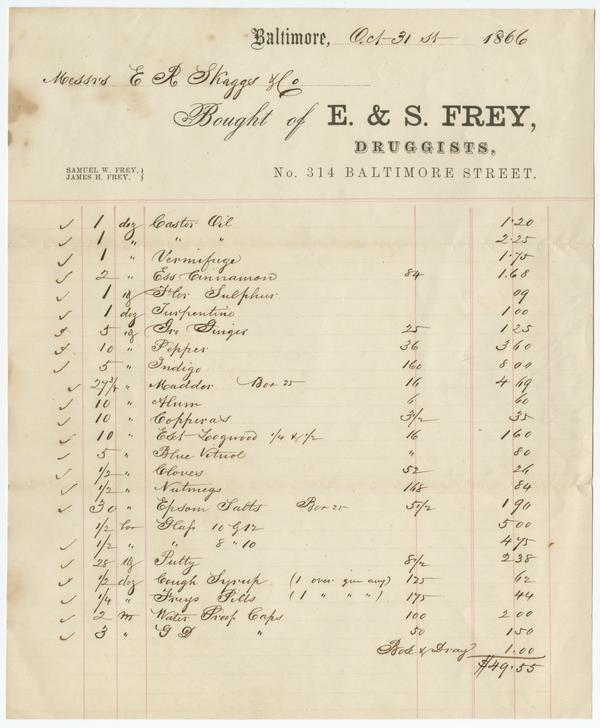 Baltimore, Oct 31 st 1866
Messrs E R Skaggs & Co
Bought of E. & S. FREY,
DRUGGISTS,
SAMUEL W. FREY,
JAMES H. FREY.
No. 314 BALTIMORE STREET.
✓ 1 doz Castor Oil 1.20
✓ 1 " " " 2.25
✓ 1 " Vermifuge 1.75
✓ 2 " Ess Cinnamon 84 1.68
✓ 1 lb Flor Sulphur 09
✓ 1 doz Turpentine 1 00
✓ 5 lb Gro Ginger 25 1 25
✓ 10 " Pepper 36 3 60
✓ 5 " Indigo 160 8 00
✓ 27 3/4 " Madder Box 25 16 4 69
✓ 10 " Alum 6 60
✓ 10 " Copperas 3 1/2 35
✓ 10 " Ext Logwood 1/4 & 1/2 16 1 60
✓ 5 " Blue Vitriol " 80
✓ 1/2 " Cloves 52 26
✓ 1/2 " Nutmegs 168 84
✓ 30 " Epsom Salts Box 25 5 1/2 1 90
1/2 box Glass 10 & 12 5 00
✓ 1/2 " " 8 " 10 4 75
✓ 28 lb Putty 8 1/2 2 38
✓ 1/2 doz Cough Syrup (1 over given away) 125 62
✓ 1/4 " Freys Pills (1 " " ") 175 44
✓ 2 m Water Proof Caps 100 2 00
✓ 3 " G D " 50 1 50
Box & Dray 1.00
$49.55